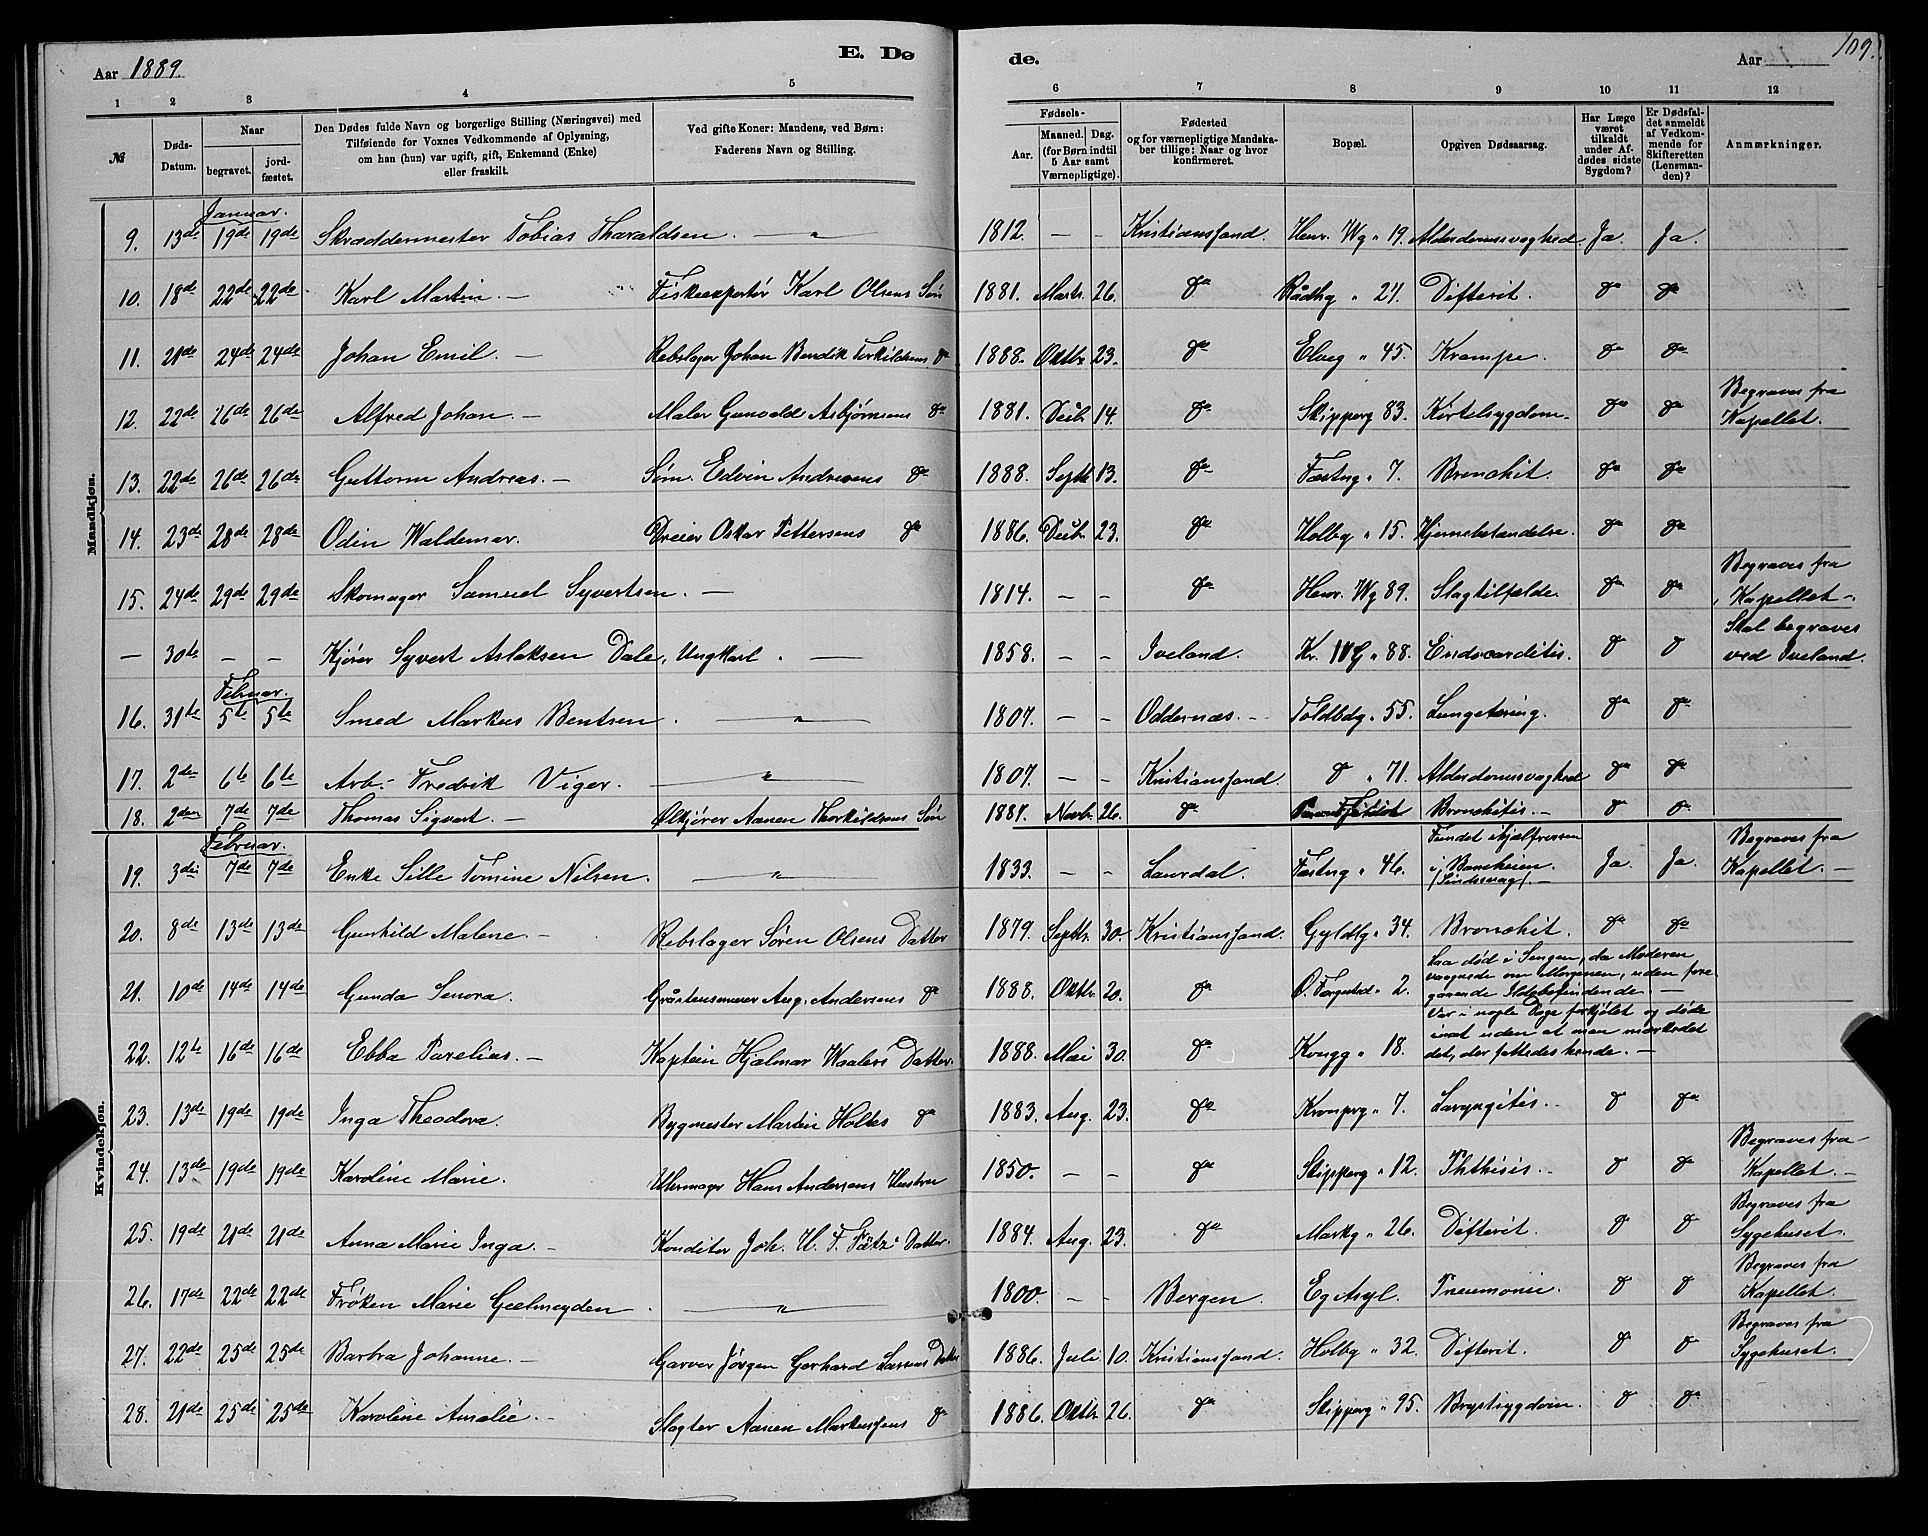 Aar 1889. E. Dø de. Aar 109.
1 2 3 4 5 6 7 8 9 10 11 12
№ Døds-Datum. Naar begravet. jordfæstet. Den Dødes fulde Navn og borgerlige Stilling (Næringsvei) med Tilføiende for Voxnes Vedkommende af Oplysning, om han (hun) var ugift, gift, Enkemand (Enke) eller fraskilt. Ved gifte Koner: Mandens, ved Børn: Faderens Navn og Stilling. Fødsels- Aar. Maaned. Dag. (for Børn indtil 5 Aar samt Værnepligtige). Fødested og for værnepligtige Mandskaber tillige: Naar og hvor konfirmeret. Bopæl. Opgiven Dødsaarsag. Har Læge været tilkaldt under Afdødes sidste Sygdom? Er Dødsfaldet anmeldt af Vedkommende for Skifteretten (Lensmanden)? Anmærkninger.
Mandkjøn.
Januar.
9. 13de 19de 19de Skræddermester Tobias Tharaldsen. — " 1812. — — Kristianssand. Henr. Wg " 19. Alderdomssvaghed Ja. Ja.
10. 18de 22de 22de Karl Martin. — Fiskeexportør Karl Olsens Søn 1881. Marts 26. do Rådhg " 27. Difterit. do do
11. 21de 24de 24de Johan Emil. — Rebslager Johan Bendik Torkildsens do 1888. Oktbr 23. do Elveg " 45. Krampe. do do
12. 22de 26de 26de Alfred Johan. — Maler Gunvald Asbjørnsens do 1881. Decb. 14. do Skipperg 83. Kirtelsygdom. do do Begraves fra Kapellet.
13. 22de 26de 26de Guttorm Andreas. — Søm. Edvin Andresens do 1888. Septb 13. do Fæstng " 7. Bronchit. do do
14. 23de 28de 28de Odin Waldemar. Dreier Oskar Pettersens do 1886. Decb. 23. do Holbg " 15. Hjernebetændelse. do do
15. 24de 29de 29de Skomager Samuel Syvertsen. — 1814. — — do Henr. Wg 89. Slagtilfælde. do do Begraves fra Kapellet —
— 30te — — Kjører Syvert Aslaksen Dale, Ungkarl. — 1858. — — Iveland. Kr. IV G " 88. Endocarditis. do do Skal begraves ved Iveland.
Februar.
16. 31te 5te 5te Smed Markus Bentsen. — " — 1807. — — Oddernæs. — Toldbdg " 55. Lungetæring. do do
17. 2den 6te 6te Arb. Fredrik Viger. — " — 1807. — — Kristianssand. do " 71. Alderdomssvaghed do do
18. 2den 7de 7de Thomas Sigvart. — Ølkjører Aanen Thorkildsens Søn 1887. Novbr 26. do Bronchitis. — do do
Kvindekjøn.
Februar.
19. 3die 7de 7de Enke Sille Tomine Nilsen. — " — 1833. — — Laurdal. Fæstng " 46. Fundet ihjelfrossen i Baneheien (Sindssvag). — Ja. Ja. Begraves fra Kapellet. —
20. 8de 13de 13de Gunhild Malene. — Rebslager Søren Olsens Datter 1879. Septbr. 30. Kristianssand. Gyldlg " 34. Bronchit. do do
21. 10de 14de 14de Gunda Senora. Gråstensmurer Aug. Andersens do 1888. Oktbr 20. do Ø. " 2. Laa død i Sengen, da Moderen vaagnede om Morgenen, uden foregaaende Ildebefindende. —
22. 12te 16de 16de Ebba Parelius. — Kaptein Hjalmar Waalers Datter. 1888. Mai 30. do Kongg " 18. Var i nogle Dage forkjølet og døde inat uden at man mærkede det, der fattedes hende. —
23. 13de 19de 19de Inga Theodora. Bygmester Martin Holtes do 1883. Aug. 23. do Kronprg " 7. Laryngitis. — do do
24. 13de 19de 19de Karoline Marie. Uhrmager Hans Andersens Hustru 1850. — — do Skipperg " 12. Phthisis. — do do Begraves fra Kapellet. —
25. 19de 21de 21de Anna Marie Inga. — Konditor Joh. H. F. Fätz' Datter. 1884. Aug. 23. do Markg " 26. Difterit. do do Begraves fra Sygehuset.
26. 17de 22de 22de Frøken Marie Geelmuyden. — " — 1800. — — Bergen. Eg Asyl. Pneumonie. do do Begraves fra Kapellet.
27. 22de 25de 25de Barbra Johanne. — Garver Jörgen Gerhard Larsens Datter 1886. Juli 10. Kristianssand. Holbg " 32. Difterit. do do Begraves fra Sygehuset.
28. 21de 25de 25de Karoline Amalie. — Slagter Aanen Markussens do 1886. Oktbr 26. do Skipperg " 95. Brystsygdom. do do